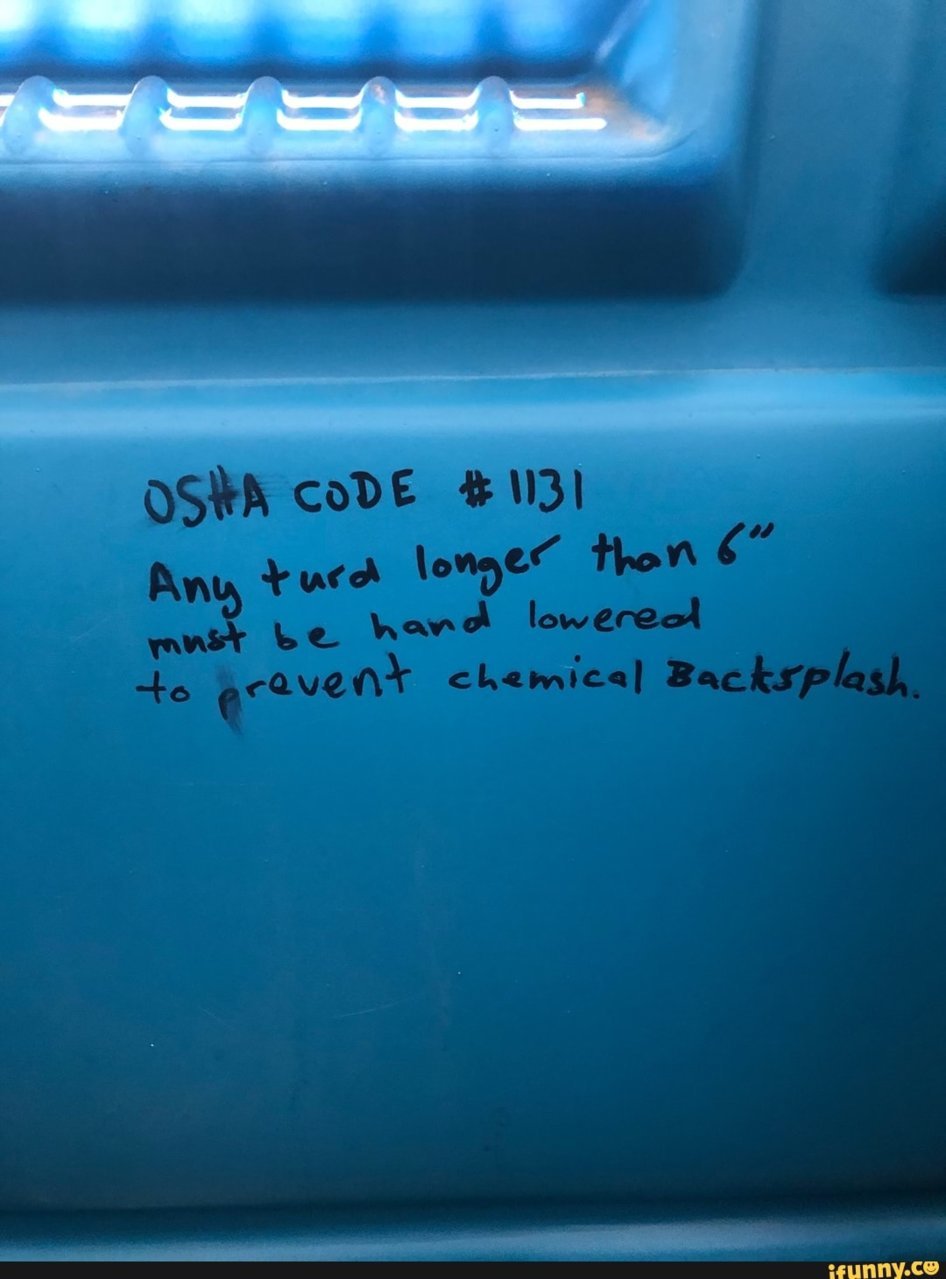 OSHA CODE #1131
Any turd longer than 6"
must be hand lowered
to prevent chemical Backsplash.
ifunny.co